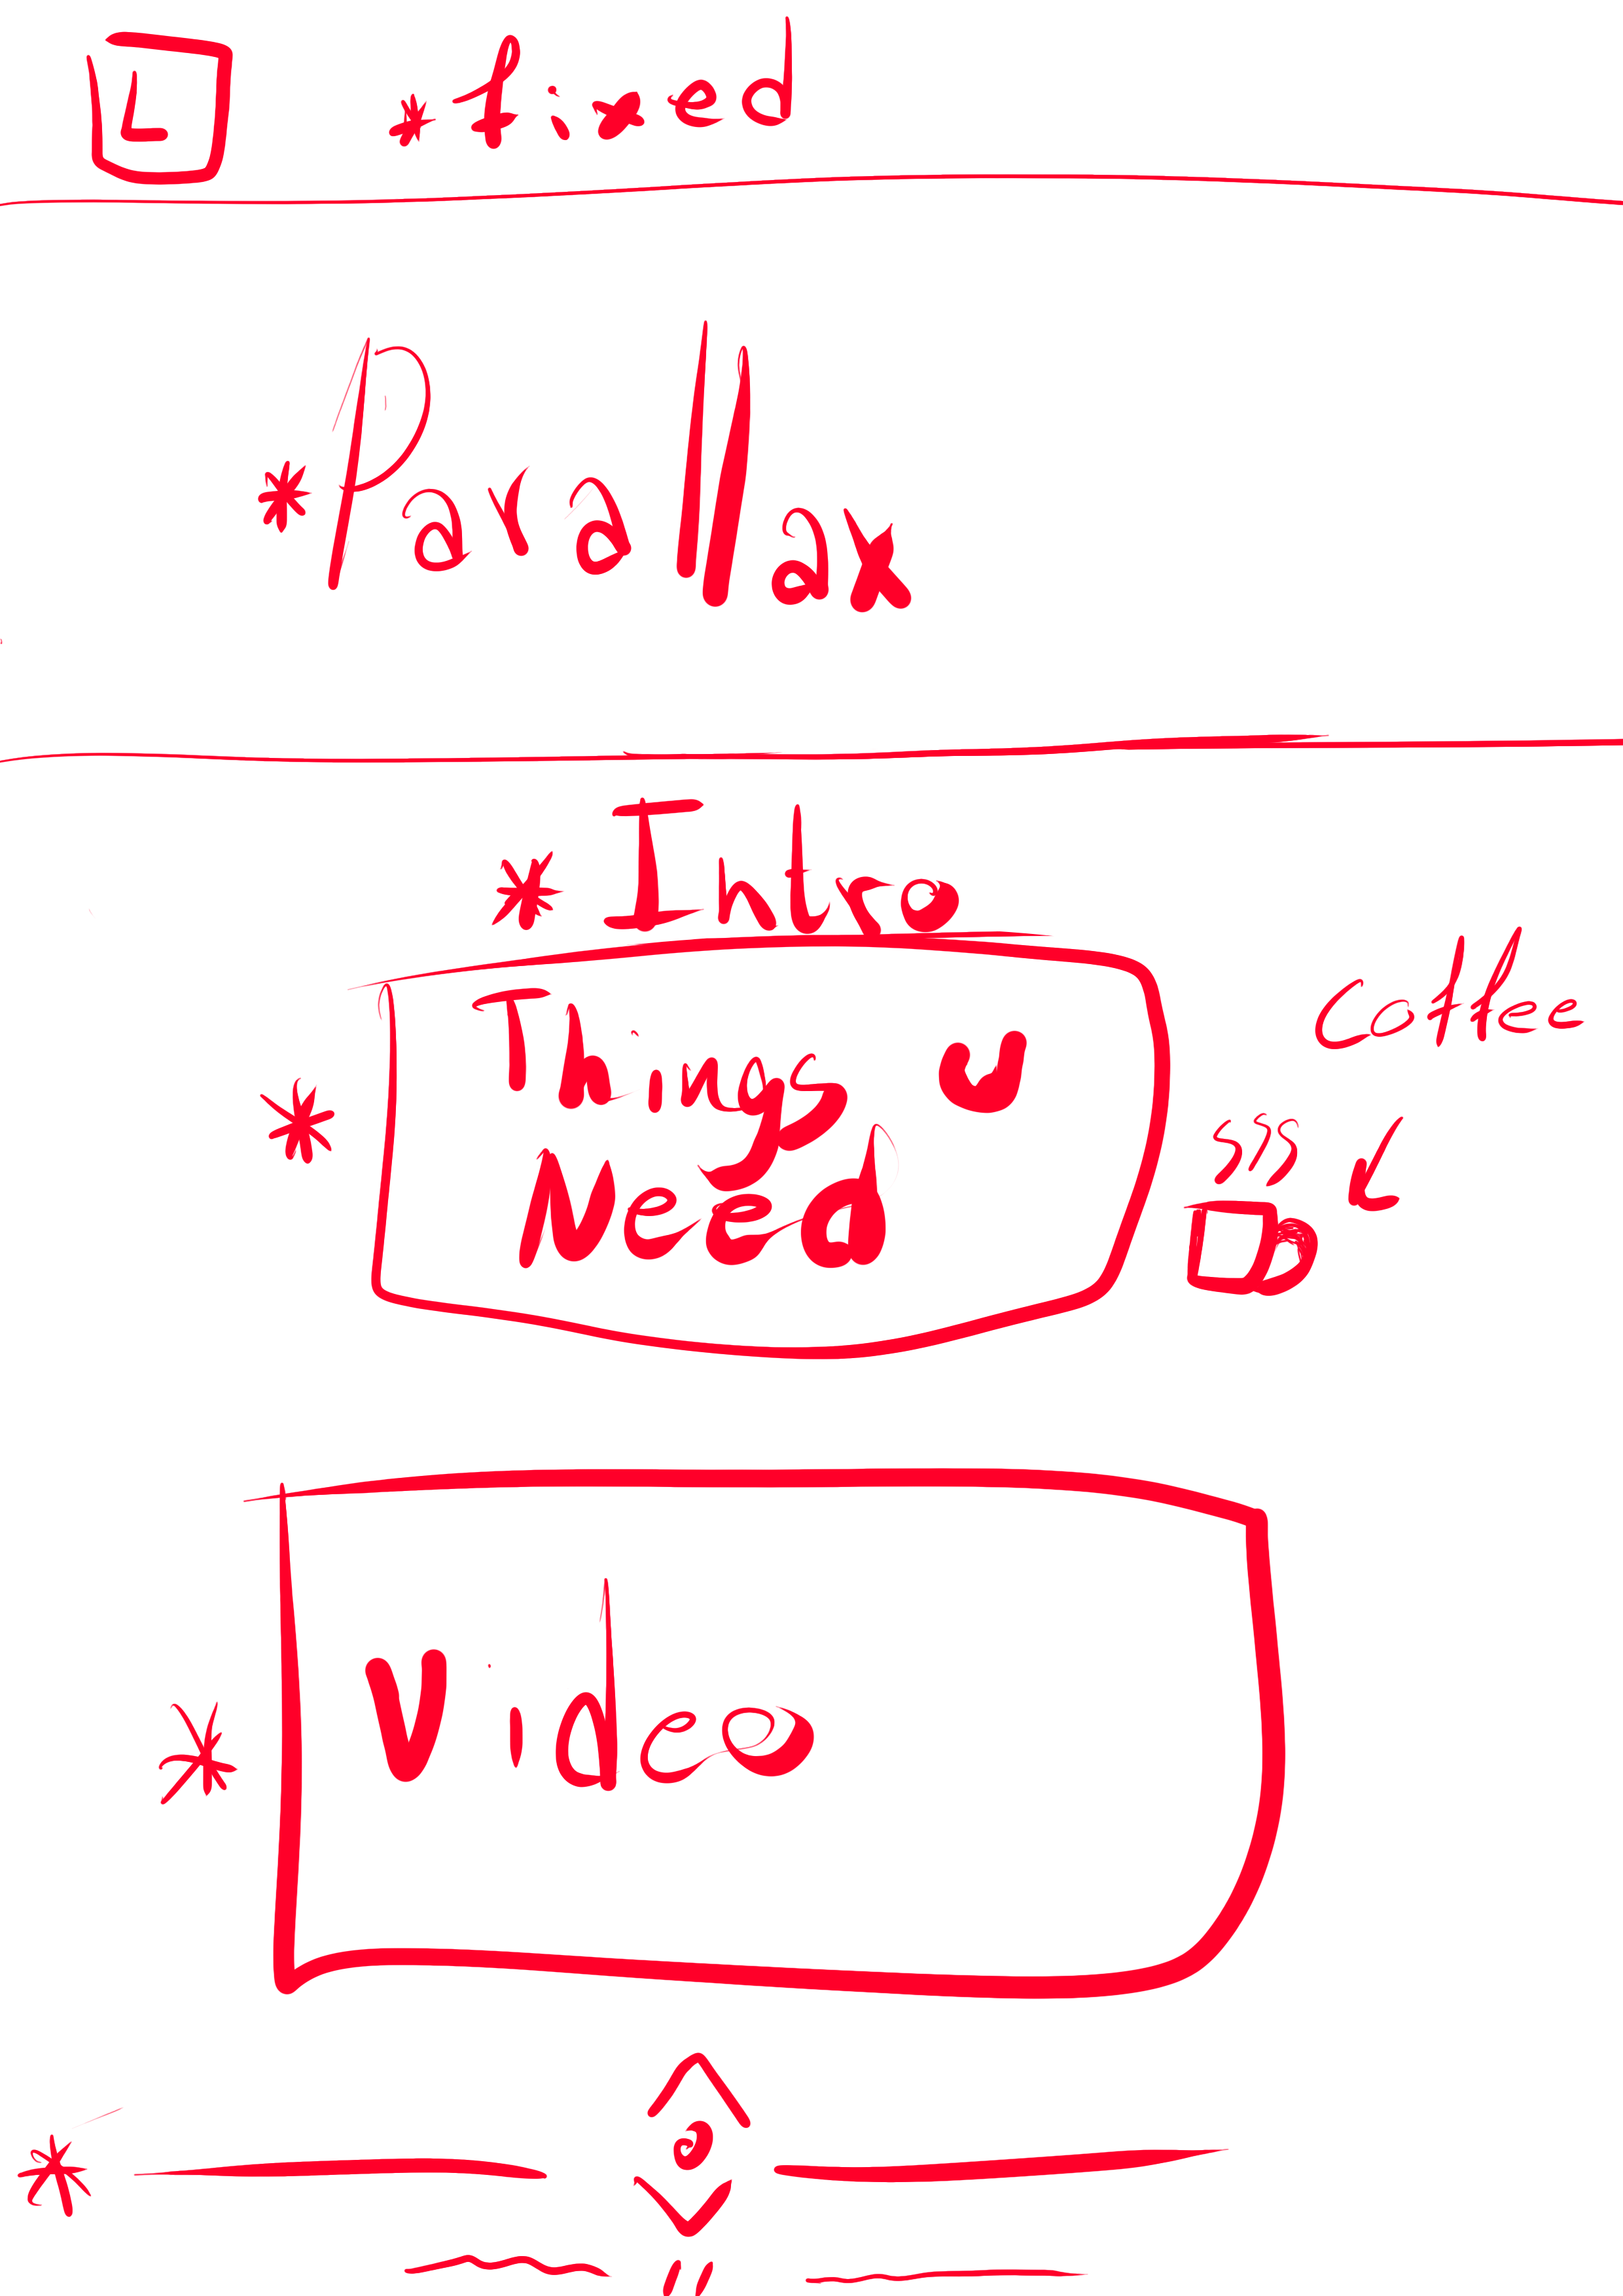 L
*fixed
*Parallax
*Intro
* Things U
Need
coffee
* Video
*